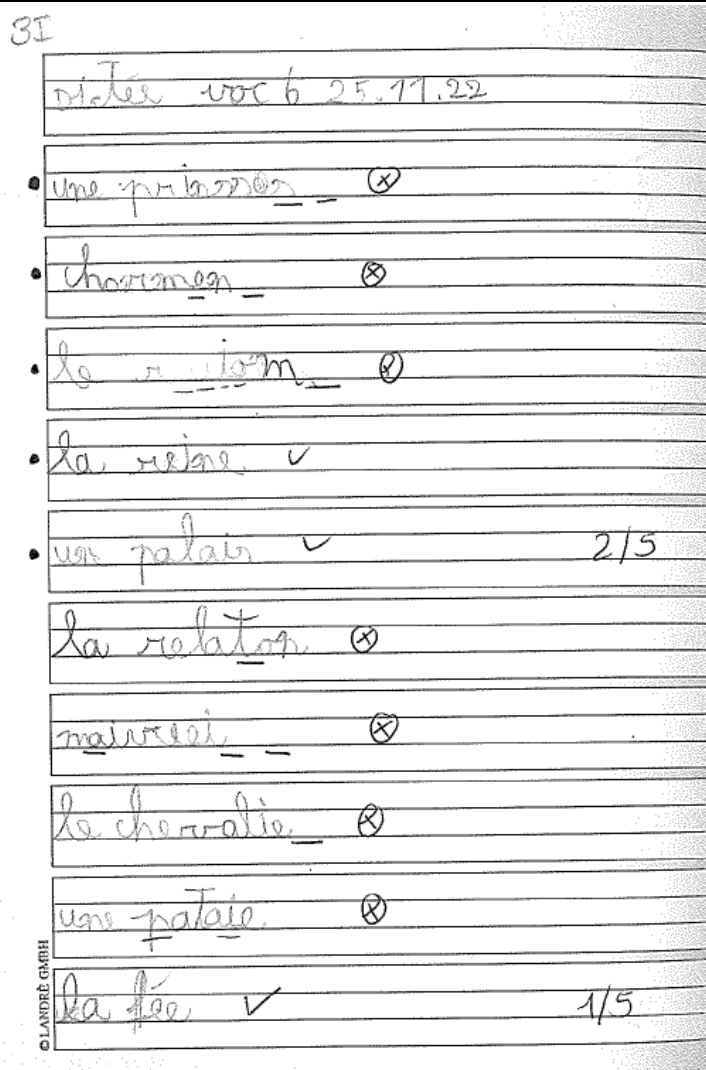 3I
Dictée voc 6 25.11.22
une prinsses
charmen
le
la reine
un palais 2/5
la relaton
maivrei
le chevalie
une pataie
la fée 1/5
© LANDRÉ GMBH